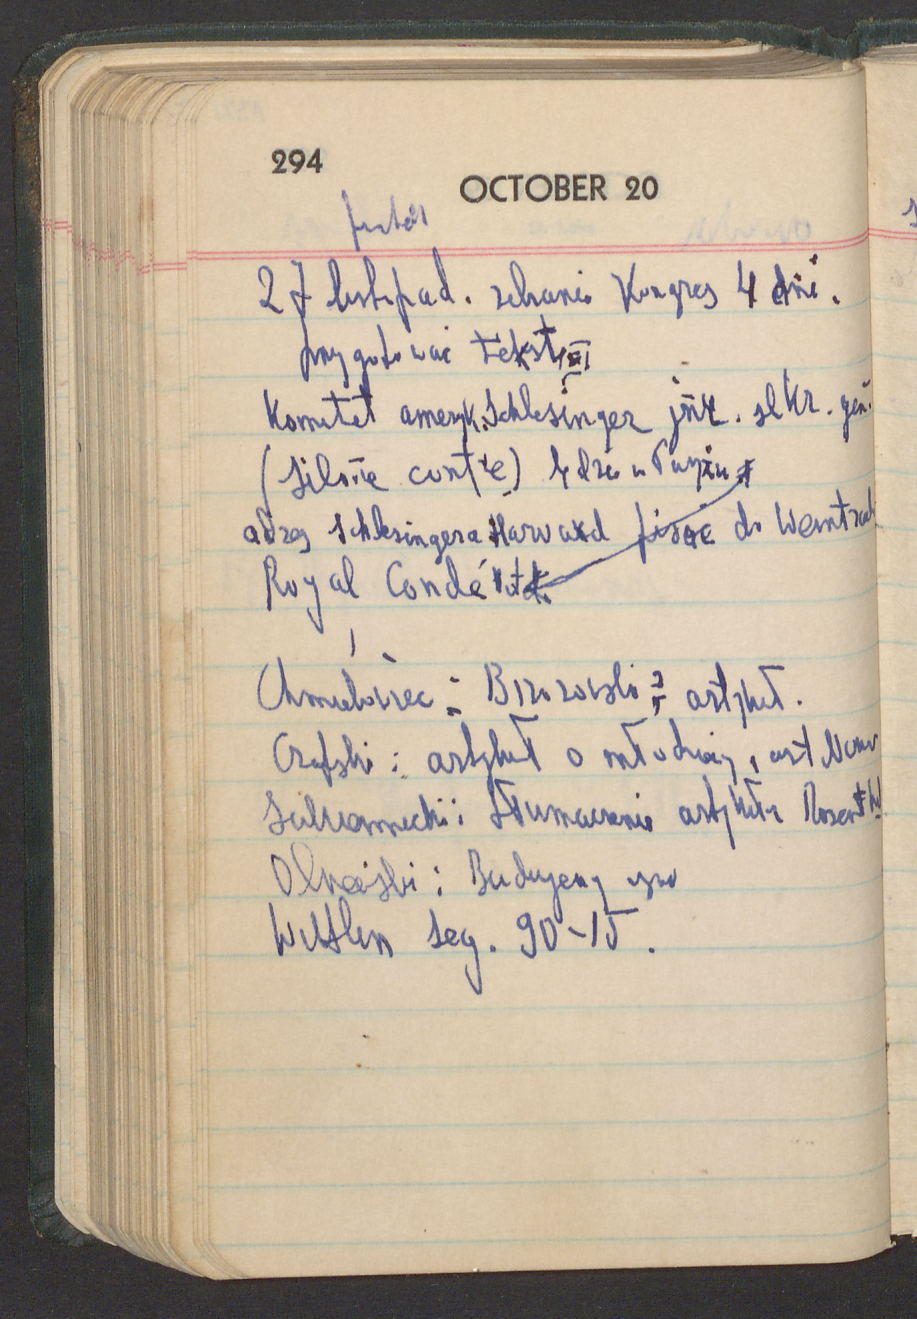 294
OCTOBER 20
27 listopad. zebranie Kongres 4 dni.
przygotować tekst
Komitet ameryk. Schlesinger jnr. sekr. gen.
(Silone contre) 4 dni w Paryżu
adres Schlesingera Harvard pisać do Weintraub
Royal Condé
Chmielowiec : Brzozowski ; artykuł.
Czapski : artykuł o młodzieży, art
: tłumaczenie artykułu
: Budujemy
Wittlin seg. 90-15.